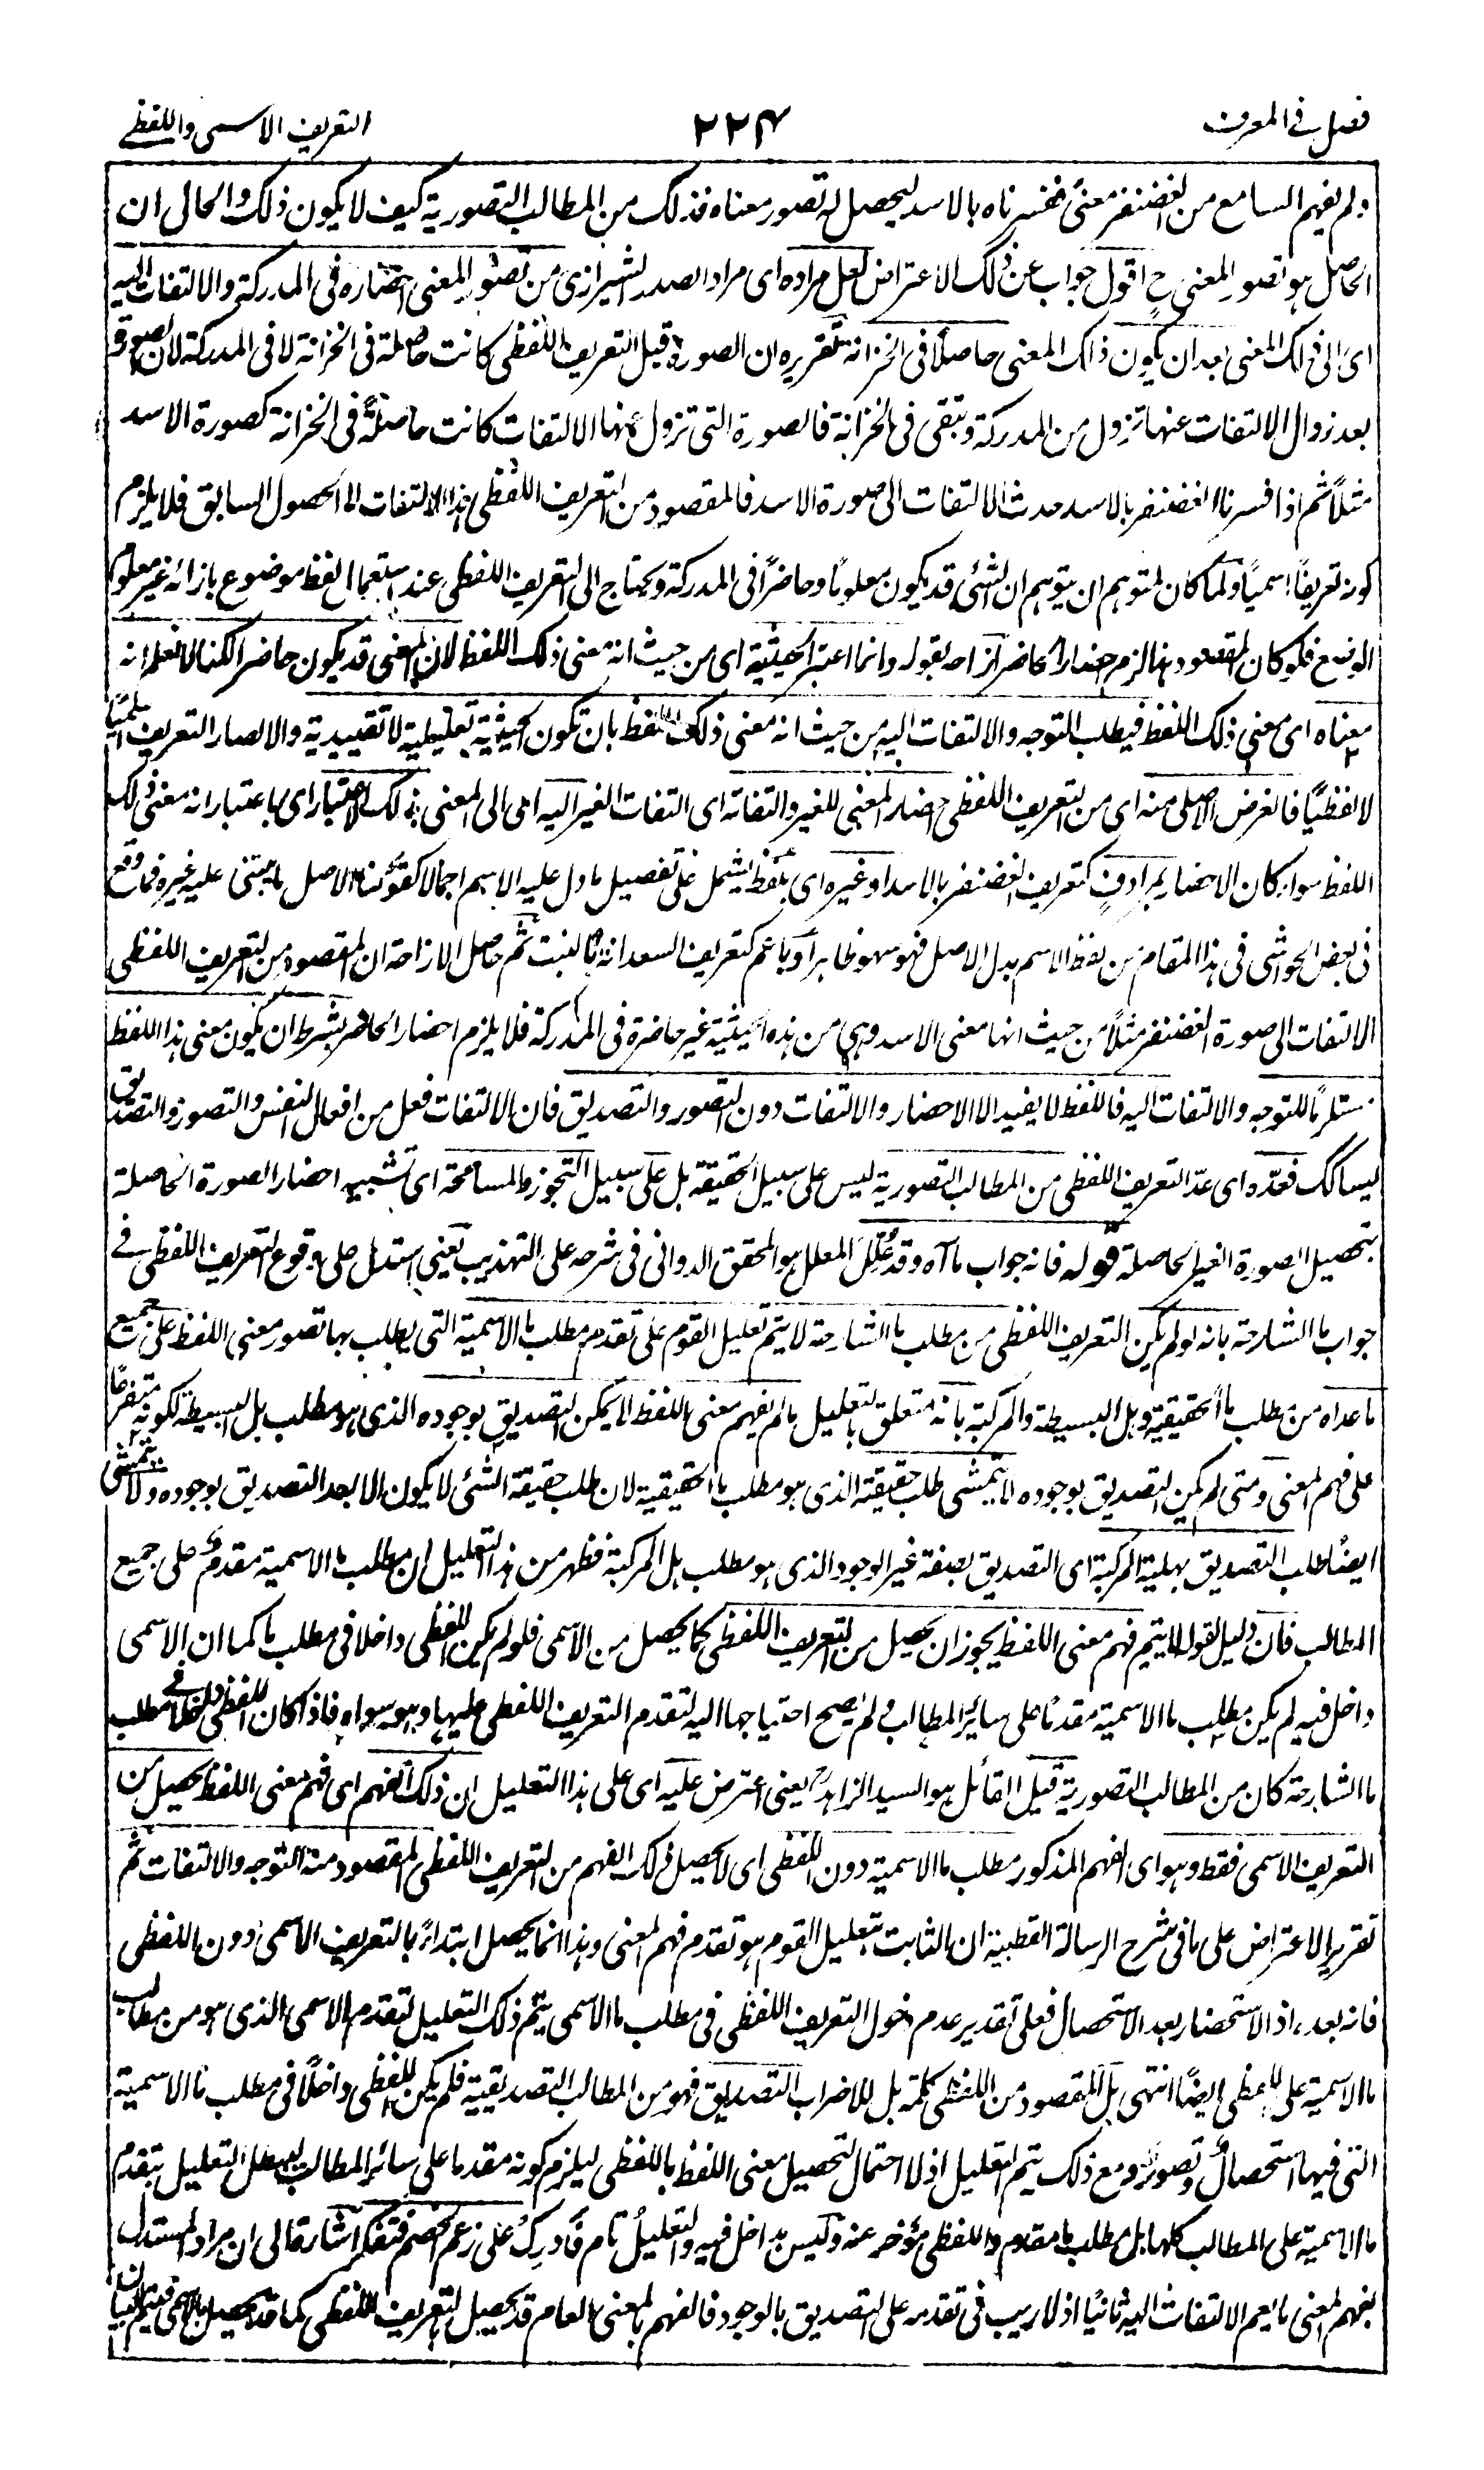 فصل في المعرف
٢٢٤
التعريف الاسمى واللفظے
ولم يفهم السامع من الغضنفر معنىً ففسرناه بالاسد ليحصل له تصور معناه فذلك من المطالب التصورية كيف لا يكون ذلك والحال ان
الحاصل هو تصور المعنى ح اقول جواب عن ذلك الاعتراض لعل مراده اى مراد الصدر الشيرازى من تصور المعنى احضاره فى المدركة والالتفات اليه
اى الى ذلك المعنى بعد ان يكون ذلك المعنى حاصلًا فى الخزانة تقريره ان الصورة قبل التعريف اللفظى كانت حاصلة فى الخزانة لا فى المدركة لان الصورة
بعد زوال الالتفات عنها تزول من المدركة وتبقى فى الخزانة فالصورة التى تزول عنها الالتفات كانت حاصلةً فى الخزانة كصورة الاسد
مثلًا ثم اذا فسرنا الغضنفر بالاسد حدث الالتفات الى صورة الاسد فالمقصود من التعريف اللفظى هذا الالتفات الى الحصول السابق فلا يلزم
كونه تعريفًا اسميًا ولما كان لمتوهم ان يتوهم ان الشئ قد يكون معلومًا وحاضرًا فى المدركة ويحتاج الى التعريف اللفظى عند استعمال لفظ موضوع بازائه غير معلوم
الوضع فلو كان المقصود هذا لزم احضار الحاضر ازاحه بقوله وانما اعتبر الحيثية اى من حيث انه معنى ذلك اللفظ لان المعنى قد يكون حاضرا لكنا لا نعلم انه
معناه اى معنى ذلك اللفظ فيطلب التوجه والالتفات اليه من حيث انه معنى ذلك اللفظ بان تكون الحيثية تعليلية لا تقييدية والا لصار التعريف اسميًا
لا لفظيًا فالغرض الاصلى منه اى من التعريف اللفظى احضار المعنى للغير والتفاته اى التفات الغير اليه اى الى المعنى بذلك الاعتبار اى باعتبار انه معنى ذلك
اللفظ سواء كان الاحضار بمرادف كتعريف الغضنفر بالاسد او غيره اى بلفظ يشمل على تفصيل ما دل عليه الاسم اجمالا كقولنا الاصل ما يبتنى عليه غيره فما وقع
فى بعض الحواشى فى هذا المقام من لفظ الاسم بدل الاصل فهو سهو ظاهر او باعم كتعريف السعدانة بالنبت ثم حاصل الازاحة ان المقصود من التعريف اللفظى
الالتفات الى صورة الغضنفر مثلًا من حيث انها معنى الاسد وهى من هذه الحيثية غير حاضرة فى المدركة فلا يلزم احضار الحاضر بشرط ان يكون معنى هذا اللفظ
مستلزمًا للتوجه والالتفات اليه فاللفظ لا يفيد الا الاحضار والالتفات دون التصور والتصديق فان الالتفات فعل من افعال النفس والتصور والتصديق
ليسا كك فعدّه اى عدّ التعريف اللفظى من المطالب التصورية ليس على سبيل الحقيقة بل على سبيل التجوز والمسامحة اى تشبيه احضار الصورة الحاصلة
بتحصيل الصورة الغير الحاصلة قوله فانه جواب ما آه وقد عُلّل المعلل هو المحقق الدوانى فى شرحه على التهذيب يعنى استدل على وقوع التعريف اللفظى فے
جواب ما الشارحة بانه لو لم يكن التعريف اللفظى من مطلب ما الشارحة لا يتم تعليل القوم على تقدم مطلب ما الاسمية التى يطلب بها تصور معنى اللفظ على جميع
ما عداه من مطلب ما الحقيقية وهل البسيطة والمركبة بانه متعلق بالتعليل ما لم يفهم معنى اللفظ لا يمكن التصديق بوجوده الذى هو مطلب هل البسيطة لكونه متفرعًا
على فهم المعنى ومتى لم يكن التصديق بوجوده لا يتمشى طلب حقيقته الذى هو مطلب ما الحقيقية لان طلب حقيقة الشئ لا يكون الا بعد التصديق بوجوده ولا يتمشى
ايضًا طلب التصديق بهلية المركبة اى التصديق بصفة غير الوجود الذى هو مطلب هل المركبة فظهر من هذا التعليل ان مطلب ما الاسمية مقدم على جميع
المطالب فان دليل القوم لا يتم فهم معنى اللفظ يجوز ان يحصل من التعريف اللفظى كما يحصل من الاسمى فلو لم يكن اللفظى داخلا فى مطلب ما كما ان الاسمى
داخل فيه لم يكن مطلب ما الاسمية مقدمًا على سائر المطالب ولم يصح احتياجها اليه لتقدم التعريف اللفظى عليها وهو سواه فاذا كان اللفظى داخلا فى مطلب
ما الشارحة كان من المطالب التصورية قيل القائل هو السيد الزاهد يعنى اعترض عليه اى على هذا التعليل ان ذلك الفهم اى فهم معنى اللفظ يحصل من
التعريف الاسمى فقط وهو اى الفهم المذكور مطلب ما الاسمية دون اللفظى اى لا يحصل ذلك الفهم من التعريف اللفظى المقصود منه التوجه والالتفات ثم
تقرير الاعتراض على ما فى شرح الرسالة القطبية ان الثابت بتعليل القوم هو تقدم فهم المعنى وهذا انما يحصل ابتداءً بالتعريف الاسمى دون اللفظى
فانه بعده اذ الاستحضار بعد الاستحصال فعلى تقدير عدم دخول التعريف اللفظى فى مطلب ما الاسمى يتم ذلك التعليل لتقدم الاسمى الذى هو من مطالب
ما الاسمية على اللفظى ايضًا انتهى بل المقصود من اللفظى كلمة بل للاضراب التصديق فهو من المطالب التصديقية فلم يكن اللفظى داخلًا فى مطلب ما الاسمية
التى فيها استحصالٌ وتصورٌ ومع ذلك يتم التعليل اذ لا احتمال لتحصيل معنى اللفظ باللفظى ليلزم كونه مقدما على سائر المطالب فيبطل التعليل بتقدم
ما الاسمية على المطالب كلها بل مطلب ما مقدم واللفظى مؤخر عنه وليس بداخل فيه والتعليل تام فادرك على زعم الخصم فتفكر اشارة الى ان مراد المستدل
بفهم المعنى ما يعم الالتفات اليه ثانيًا اذ لا ريب فى تقدمه على التصديق بالوجود فالفهم بالمعنى العام قد يحصل بالتعريف اللفظى كما قد يحصل بالاسمى فيتم البيان